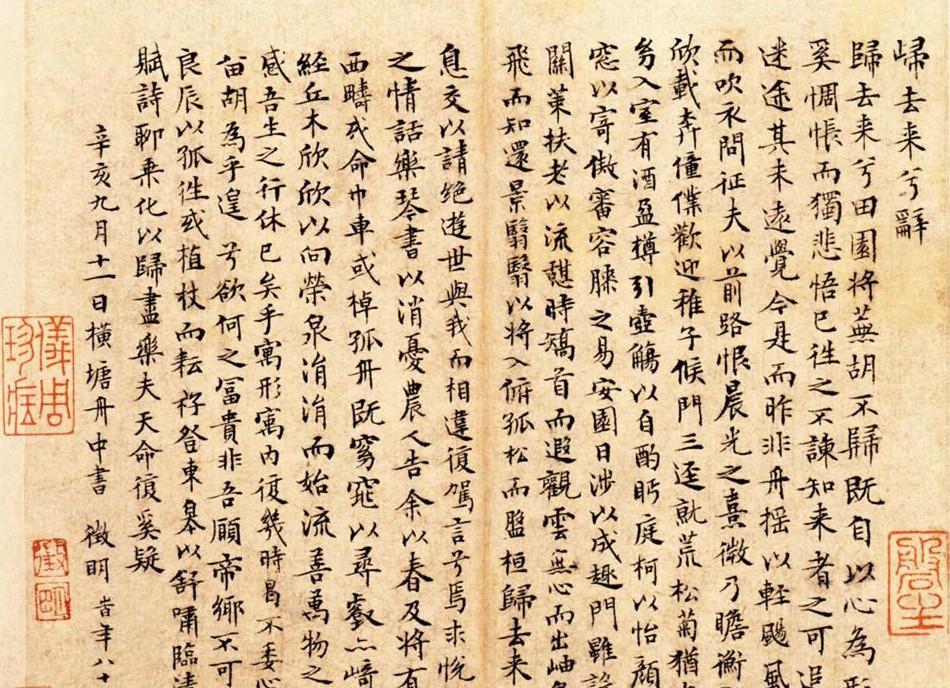 歸去来兮辭
歸去来兮田園将蕪胡不歸既自以心為形
奚惆悵而獨悲悟已往之不諫知来者之可追
迷途其未遠覺今是而昨非舟揺以輕颺風
而吹衣問征夫以前路恨晨光之熹微乃瞻衡
欣載奔僮僕歡迎稚子候門三逕就荒松菊猶
㓜入室有酒盈樽引壺觴以自酌眄庭柯以怡顔
窓以寄傲審容膝之易安園日涉以成趣門雖設
關策扶老以流憩時矯首而遐觀雲無心而出岫
飛而知還景翳翳以将入俯孤松而盤桓歸去来
息交以請絶遊世與我而相違復駕言兮焉求悦
之情話樂琴書以消憂農人告余以春及将有
西疇或命巾車或棹孤舟既窮窕以尋壑亦崎
經丘木欣欣以向榮泉涓涓而始流善萬物之
感吾生之行休已矣乎寓形寓内復幾時曷不委心
留胡為乎遑兮欲何之冨貴非吾願帝郷不可
良辰以孤往或植杖而耘耔登東皋以舒嘯臨清
賦詩聊乗化以歸盡樂夫天命復奚疑
辛亥九月十一日横塘舟中書 徴明 時年八十
徵明